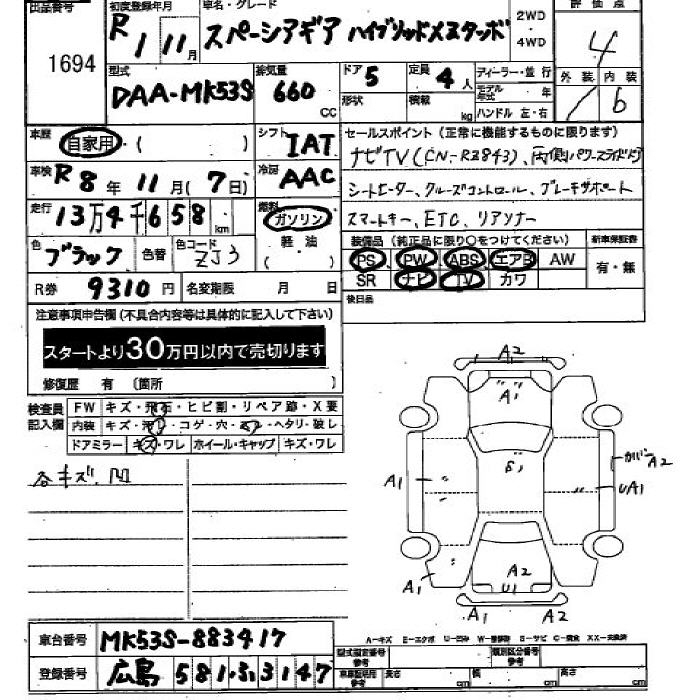 出品番号 初度登録年月 車名・グレード 2WD 評価点
1694 R1 11月 スペーシアギア ハイブリッドXZターボ ・4WD 4
型式 DAA-MK53S 排気量 660 CC ドア 5 定員 4 人 ディーラー・並行 外装 内装
形状 積載 kg モデル年式 年 ハンドル 左・右 b
車歴 自家用・( ) シフト IAT セールスポイント(正常に機能するものに限ります)
ナビTV(CN-RZ843)、両側パワースライドドア
車検 R8年 11月(7日) 冷房 AAC シートヒーター、クルーズコントロール、ブレーキサポート
走行 13万4千658 km 燃料 ガソリン スマートキー、ETC、リアソナー
軽油 ( )
色 ブラック 色替 色コード ZJ3 装備品(純正品に限り○をつけてください) 新車保証書
PS PW ABS エアB AW 有・無
R券 9310円 名変期限 月 日 SR ナビ TV カワ
後日品
注意事項申告欄(不具合内容等は具体的に記入して下さい)
スタートより30万円以内で売切ります
修復歴 有 〔箇所 〕
検査員記入欄 FW キズ・飛石・ヒビ割・リペア跡・X要
内装 キズ・汚レ・コゲ・穴・スレ・ヘタリ・破レ
ドアミラー キズ・ワレ ホイール・キャップ キズ・ワレ
各キズ.凹
A2
A1
E1
A1
カバー A2
UA1
A1
A2
U1
A1 A2
A-キズ E-エクボ U-凹み W-補修跡 S-サビ C-腐食 XX-交換済
車台番号 MK53S-883417
型式指定番号 参考 類別区分番号 参考
登録番号 広島 581 ふ 3147
車庫証明用 参考 長さ cm 幅 cm 高さ cm